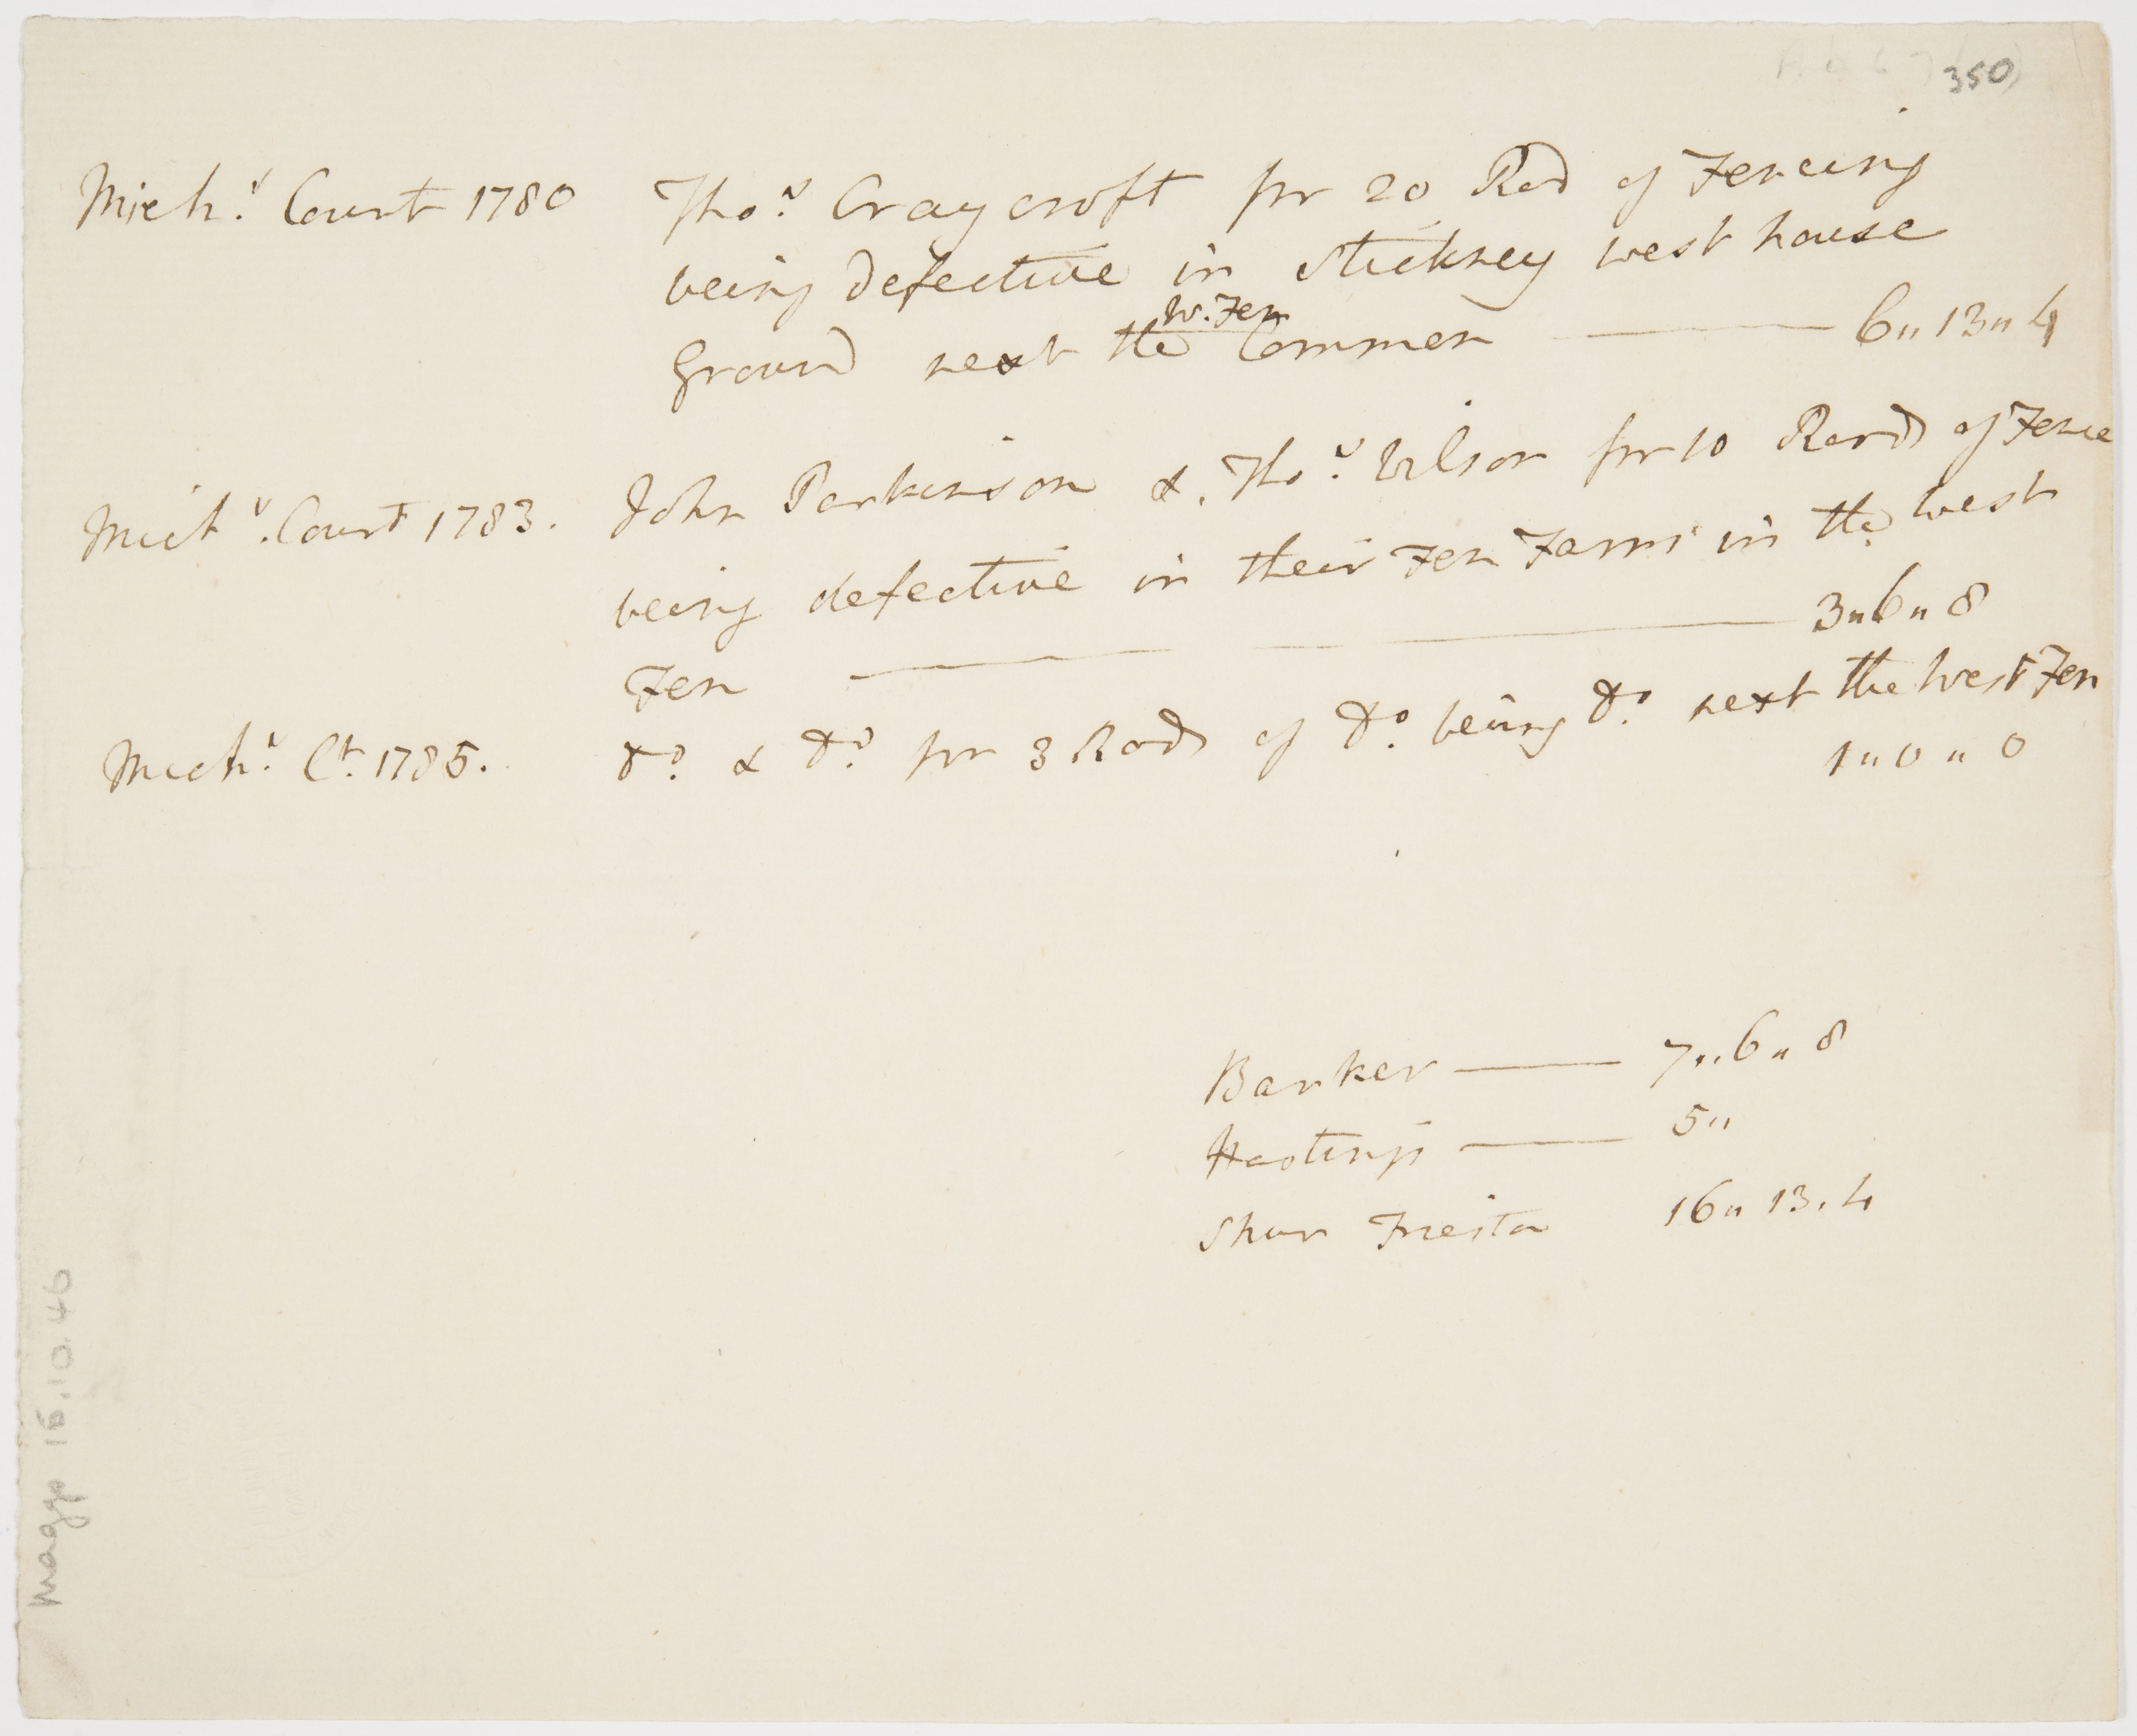 350
Mich.s Court 1780 Tho.s Craycroft for 20 Rod of Fencing
being defective in Stickney west house
W. Fen
Ground next the Common — 6,, 13,, 4
Mich.s Court 1783. John Parkinson & Tho.s Wilson for 10 Rood of Fence
being defective in their Fen Farms in the West
Fen — 3,, 6,, 8
Mich.s Ct. 1785. Do. & Do. for 3 Rods of Do. being Do. next the West Fen
1,, 0,, 0
Barker — 7,, 6,, 8
Hastings — 5,,
16,, 13. 4
Maggs 15.10.46